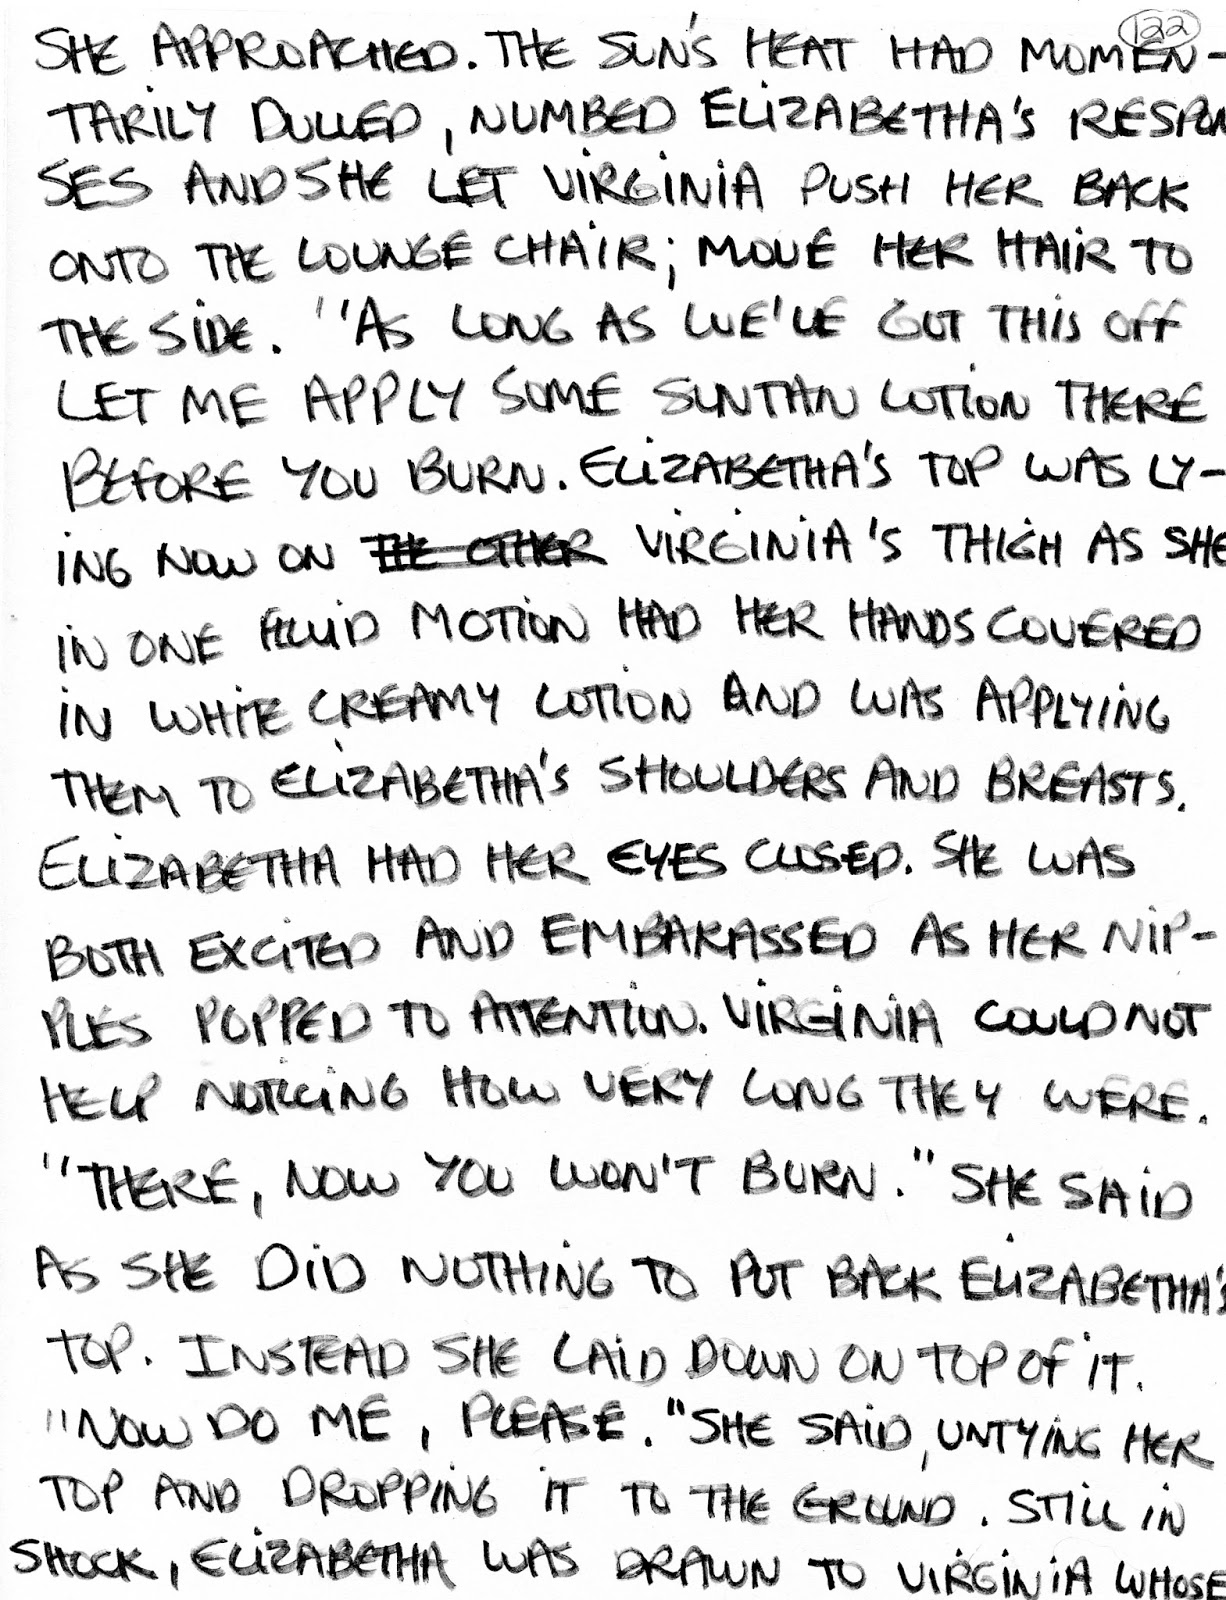 122
SHE APPROACHED. THE SUN'S HEAT HAD MOMEN-
TARILY DULLED, NUMBED ELIZABETHA'S RESPON
SES AND SHE LET VIRGINIA PUSH HER BACK
ONTO THE LOUNGE CHAIR; MOVE HER HAIR TO
THE SIDE. "AS LONG AS WE'VE GOT THIS OFF
LET ME APPLY SOME SUNTAN LOTION THERE
BEFORE YOU BURN. ELIZABETHA'S TOP WAS LY-
ING NOW ON THE OTHER VIRGINIA'S THIGH AS SHE
IN ONE FLUID MOTION HAD HER HANDS COVERED
IN WHITE CREAMY LOTION AND WAS APPLYING
THEM TO ELIZABETHA'S SHOULDERS AND BREASTS.
ELIZABETHA HAD HER EYES CLOSED. SHE WAS
BOTH EXCITED AND EMBARASSED AS HER NIP-
PLES POPPED TO ATTENTION. VIRGINIA COULD NOT
HELP NOTICING HOW VERY LONG THEY WERE.
"THERE, NOW YOU WON'T BURN." SHE SAID
AS SHE DID NOTHING TO PUT BACK ELIZABETHA'S
TOP. INSTEAD SHE LAID DOWN ON TOP OF IT.
"NOW DO ME, PLEASE." SHE SAID, UNTYING HER
TOP AND DROPPING IT TO THE GROUND. STILL IN
SHOCK, ELIZABETHA WAS DRAWN TO VIRGINIA WHOSE